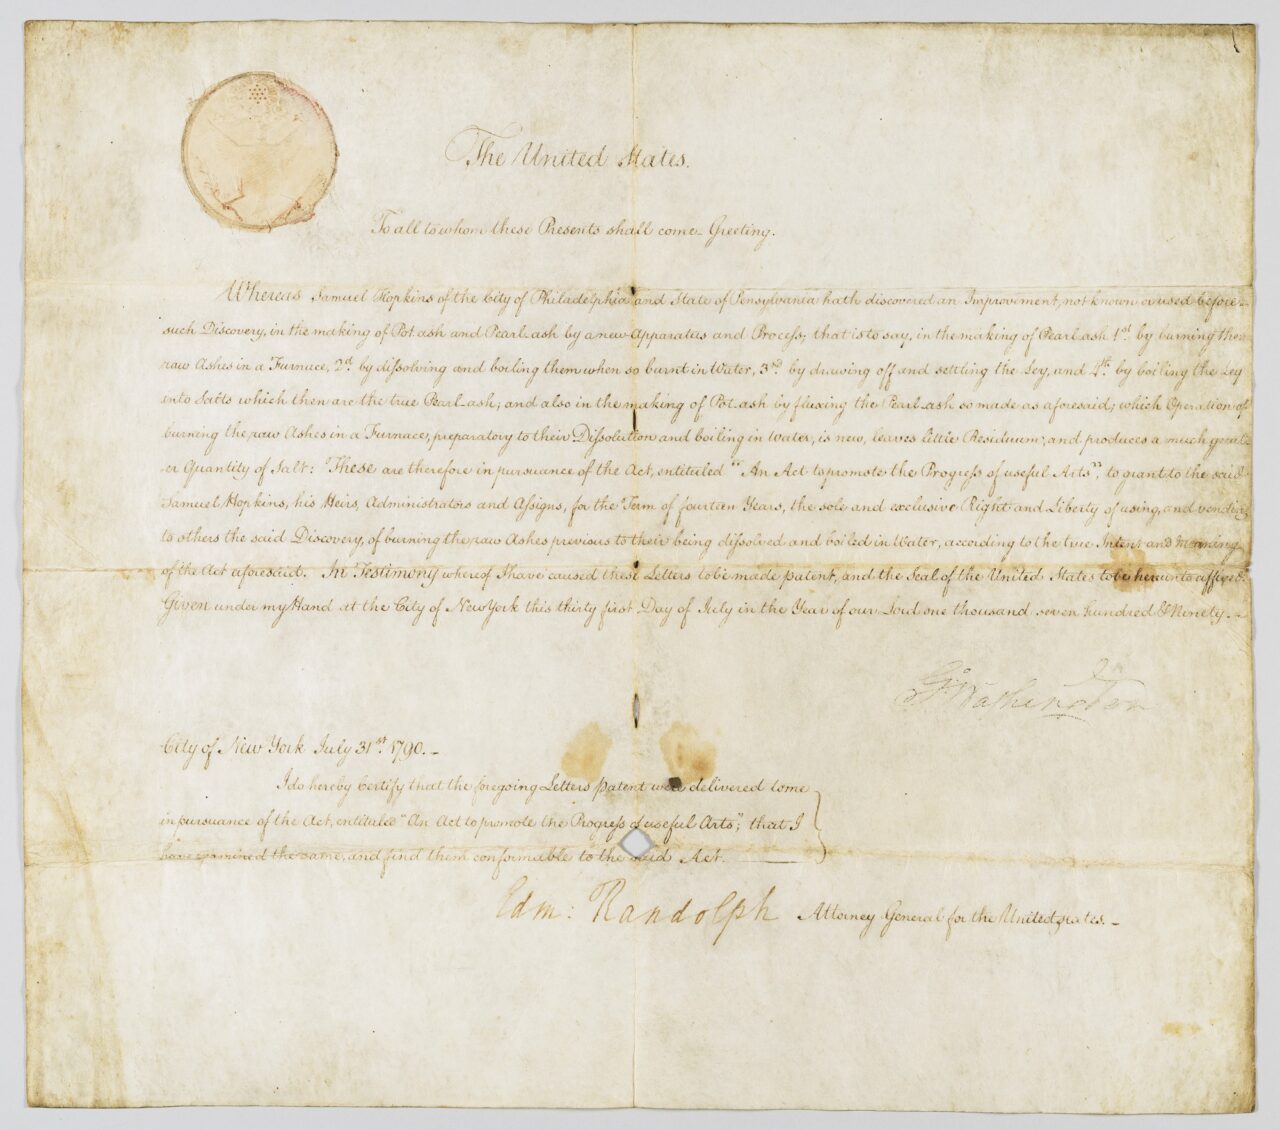 The United States.
To all to whom these Presents shall come Greeting.
Whereas Samuel Hopkins of the City of Philadelphia and State of Pensylvania hath discovered an Improvement, not known or used before
such Discovery, in the making of Pot ash and Pearl ash by a new Apparatus and Process; that is to say, in the making of Pearl ash 1st. by burning the
raw Ashes in a Furnace, 2d. by dissolving and boiling them when so burnt in Water, 3rd. by drawing off and settling the Ley, and 4th. by boiling the Ley
into Salts which then are the true Pearl ash; and also in the making of Pot ash by fluxing the Pearl ash so made as aforesaid; which Operation of
burning the raw Ashes in a Furnace, preparatory to their Dissolution and boiling in Water, is new, leaves little Residuum; and produces a much great-
er Quantity of Salt: These are therefore in pursuance of the Act, entituled "An Act to promote the Progress of useful Arts", to grant to the said
Samuel Hopkins, his Heirs, Administrators and Assigns, for the Term of fourteen Years, the sole and exclusive Right and Liberty of using, and vending
to others the said Discovery, of burning the raw Ashes previous to their being dissolved and boiled in Water, according to the true Intent and Meaning
of the Act aforesaid. In Testimony whereof I have caused these Letters to be made patent, and the Seal of the United States to be hereunto affixed.
Given under my Hand at the City of New York this thirty first Day of July in the Year of our Lord one thousand seven hundred & Ninety.
G: Washington
City of New York July 31st. 1790.
I do hereby Certify that the foregoing Letters patent were delivered to me
in pursuance of the Act, entituled "An Act to promote the Progress of useful Arts"; that I
have examined the same, and find them conformable to the said Act.
Edm: Randolph Attorney General for the United States.